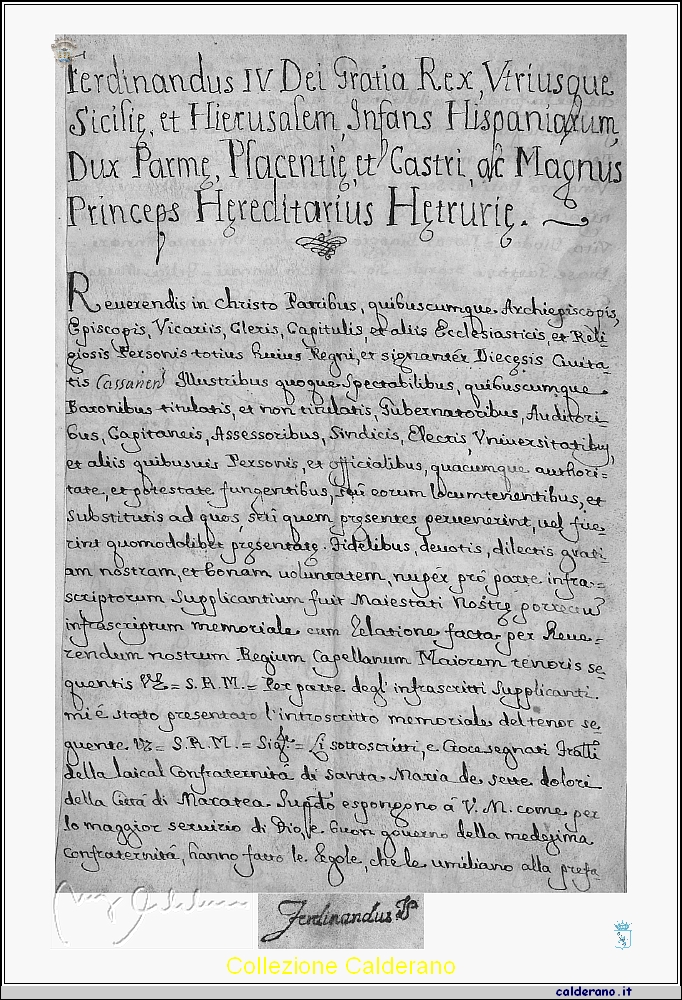 Ferdinandus IV Dei Gratia Rex, Vtriusque
Sicilię, et Hierusalem, Infans Hispaniarum,
Dux Parmę, Placentię, et Castri, ac Magnus
Princeps Hęreditarius Hętrurię.
Reuerendis in Christo Patribus, quibuscumque Archiepiscopis,
Episcopis, Vicariis, Cleris, Capitulis, et aliis Ecclesiasticis, et Reli-
giosis Personis totius huius Regni, et signantèr Diecęsis Ciuita-
tis Cassanen Illustribus quoque Spectabilibus, quibuscumque
Baronibus titulatis, et non titulatis, Gubernatoribus, Auditori-
bus, Capitaneis, Assessoribus, Sindicis, Electis, Vniuersitatibus,
et aliis quibusuis Personis, et officialibus, quacumque authori-
tate, et potestate fungentibus, seù eorum locumtenentibus, et
substitutis ad quos, seù quem pręsentes peruenerint, uel fue-
rint quomodolibet pręsentatę. Fidelibus, deuotis, dilectis grati-
am nostram, et bonam uoluntatem, nupèr prò parte infra-
scriptorum Supplicantium fuit Maiestati Nostrę porrectum
infrascriptum memoriale cum relatione facta per Reue-
rendum nostrum Regium Capellanum Maiorem tenoris se-
quentis Vz = S. R. M. = Per parte degl' infrascritti Supplicanti
mi è stato presentato l'introscritto memoriale del tenor se-
guente Vz = S. R. M. = Sig.re = Li sottoscritti, e Crocesegnati Fratelli
della laical Confraternità di santa Maria de sette dolori
della Città di Maratea. Supp.do espongono à V. M. come per
lo maggior seruizio di Dio, e buon gouerno della medesima
Confraternità, hanno fatto le Regole, che le umiliano alla prefa-
Ferdinandus
Collezione Calderano
calderano.it